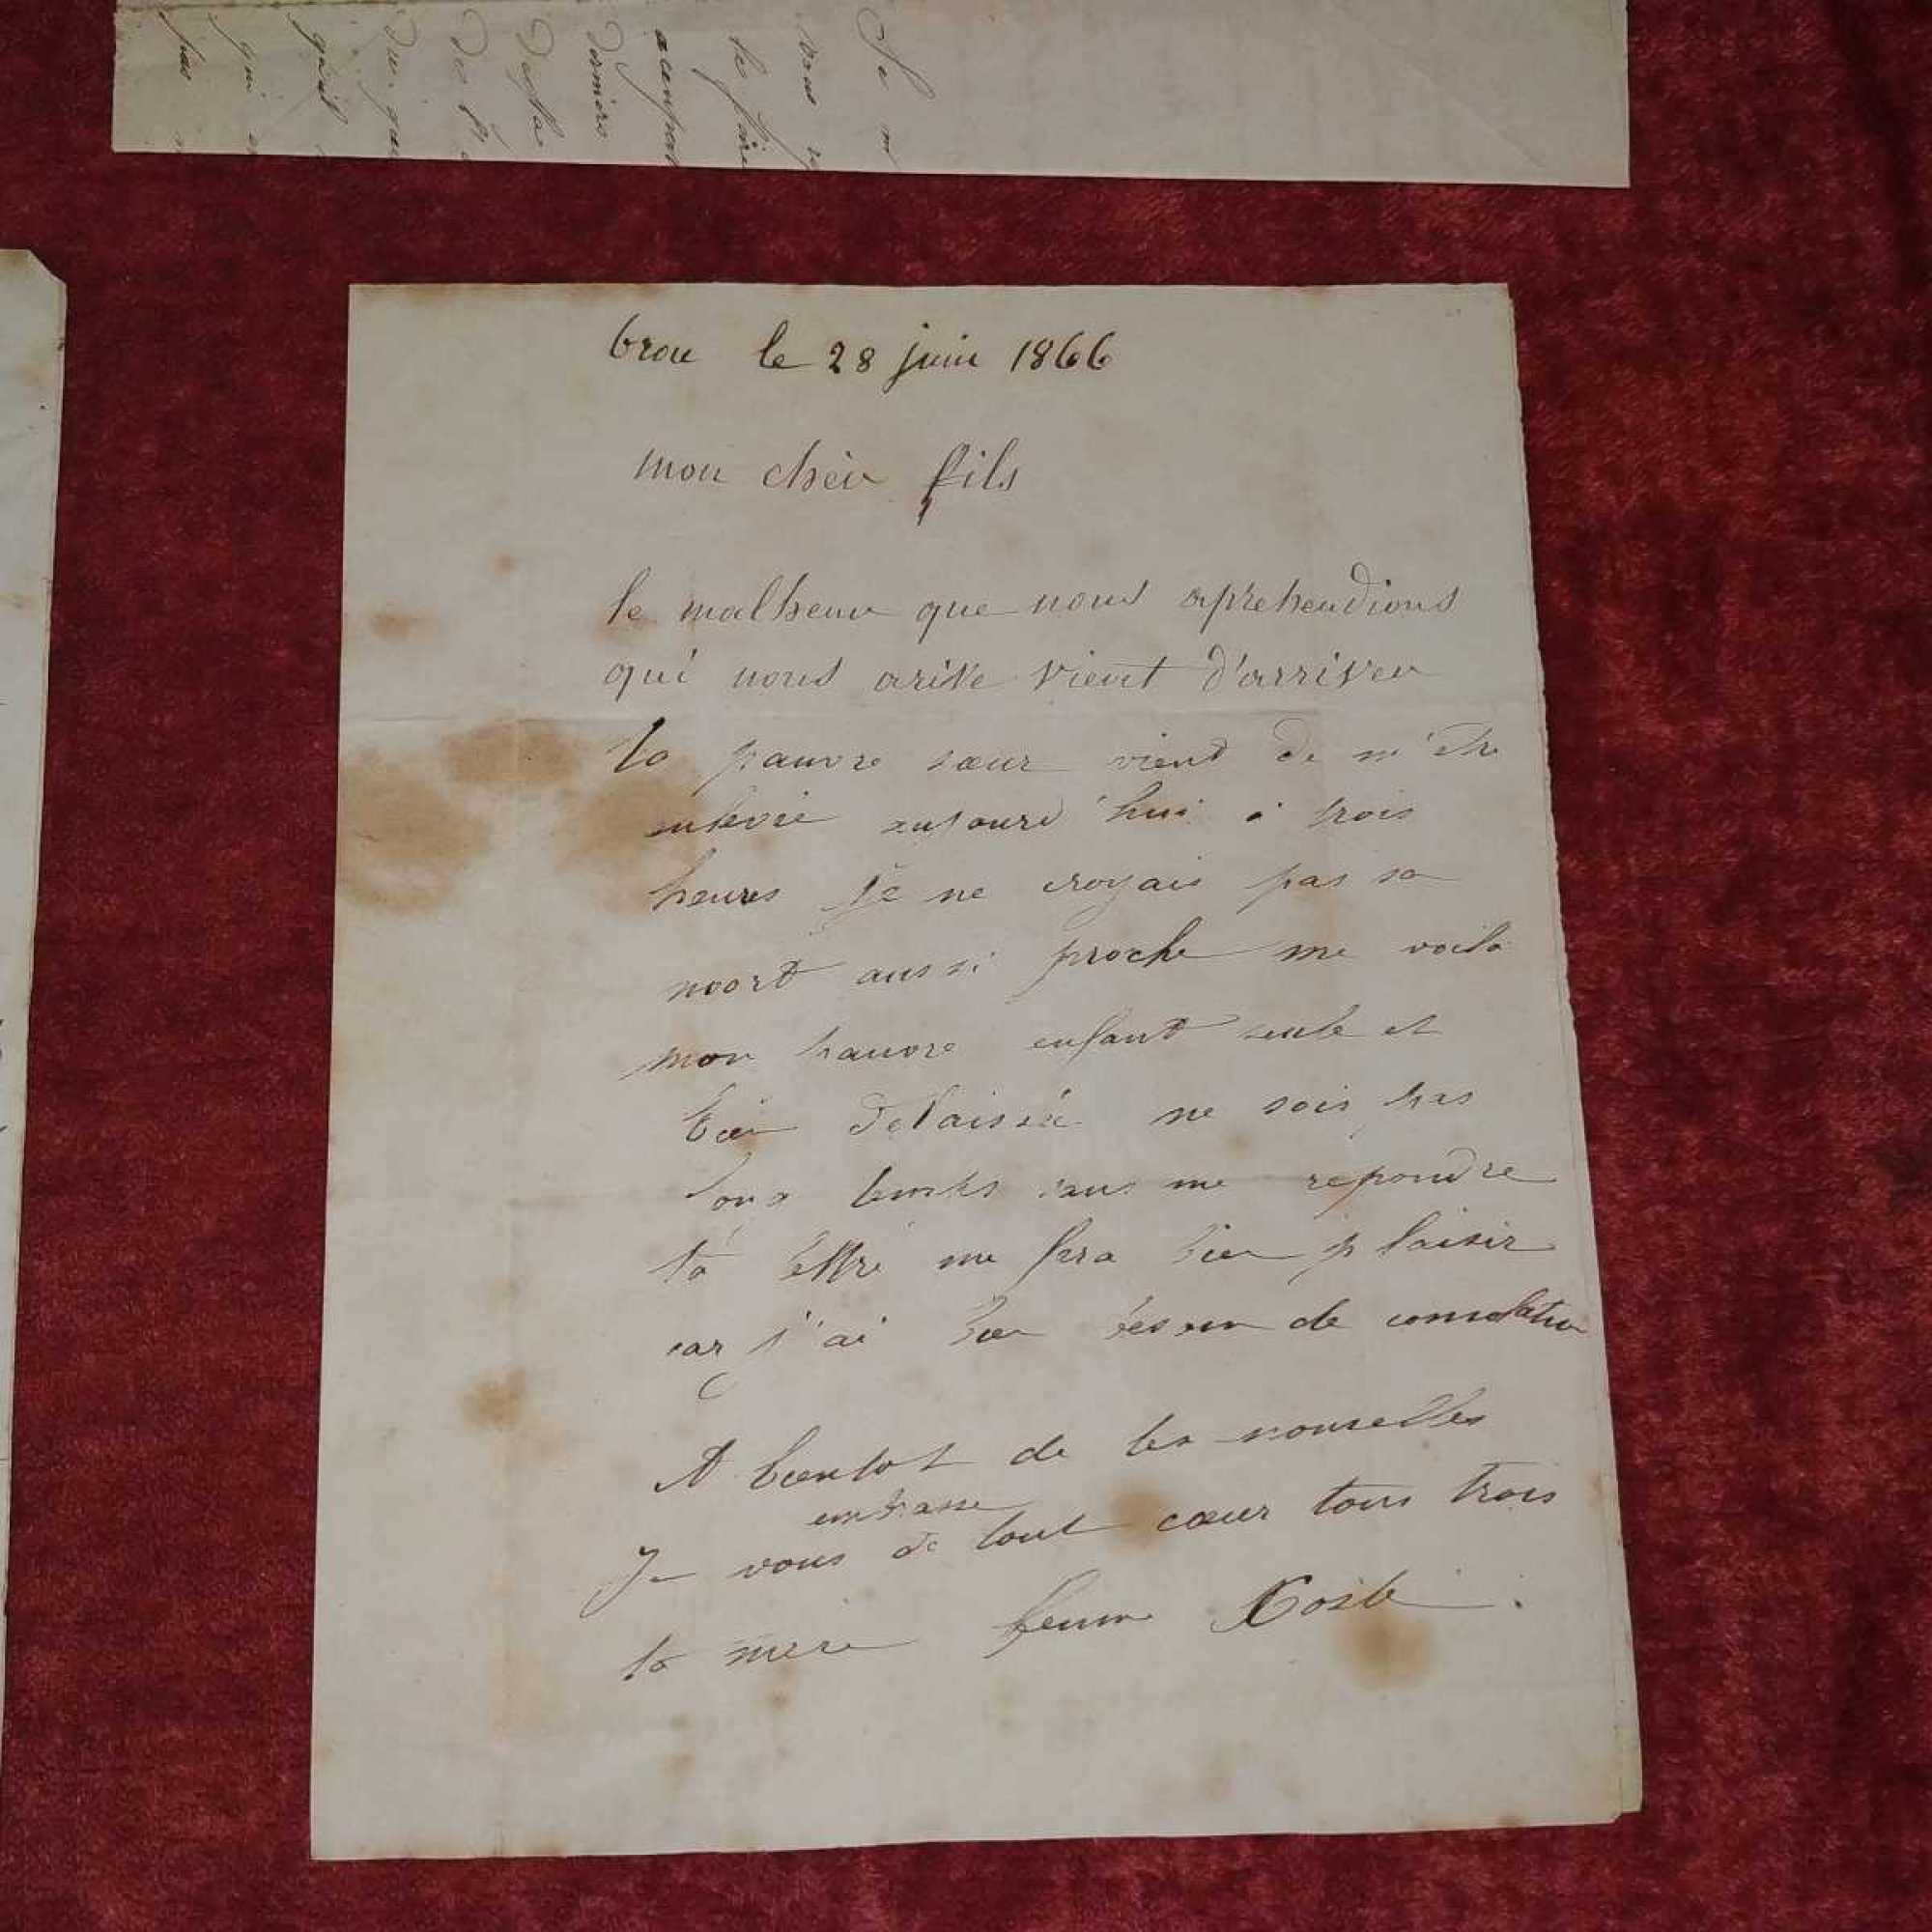 Je m
vous re
le faire
acenpat
derniers
Dette
Des l
Du que
qu'il
qui n
pas n
brou le 28 juin 1866
mon chèr fils
le malheur que nous aprehendions
qui nous arive vient d'arriver
ta pauvre sœur vient de m'être
enlevée aujourd'hui à trois
heures je ne croyais pas sa
mort aussi proche me voila
mon pauvre enfant seule et
bien delaissée ne sois pas
long temps sans me repondre
ta lettre me fera bien plaisir
car j'ai bien besoin de consolation
A bientot de tes nouvelles
embrasse
Je vous de tout cœur tous trois
ta mère femme Coste